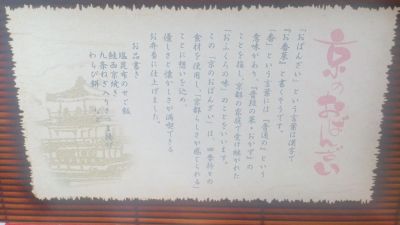 京のおばんざい
「おばんざい」という言葉は漢字で
「お番菜」と書くそうです。
「番」という言葉には「普通の」という
意味があり、「普段の菜・おかず」の
ことを指し、京都の家庭で受け継がれた
「おふくろの味」のことをいいます。
この「京のおばんざい」は、四季折々の
食材を使用し、「京都らしさが感じられる」
ことに想いを込め、
優しさと懐かしさが満喫できる
お弁当に仕上げました。
お品書き
塩昆布の
鮭西京焼き
九条ねぎ入り
わらび餅